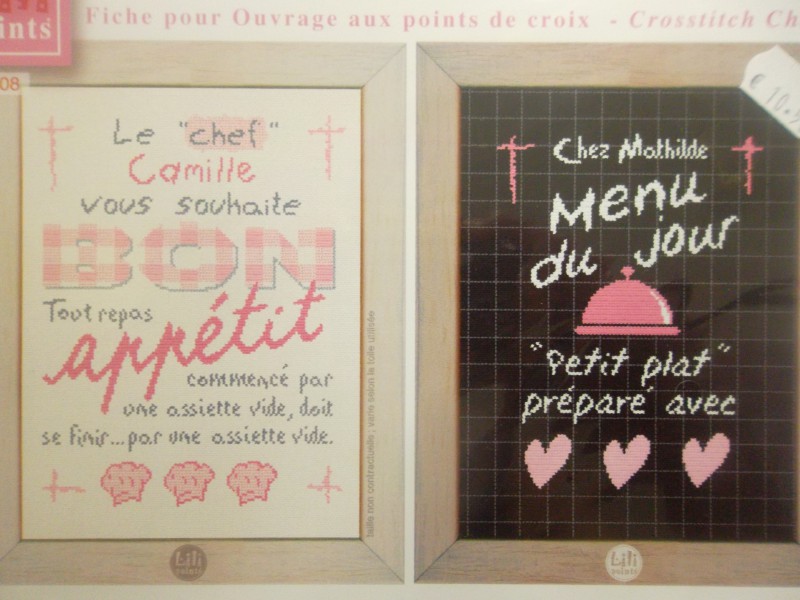 ints
Fiche pour Ouvrage aux points de croix - Crosstitch Ch
08
Le "chef"
Camille
vous souhaite
BON
Tout repas
appétit
commencé par
une assiette vide, doit
se finir...par une assiette vide.
taille non contractuelle ; varie selon la toile utilisée
Lili
points
€ 10.
Chez Mathilde
Menu
du jour
"Petit plat"
préparé avec
Lili
points